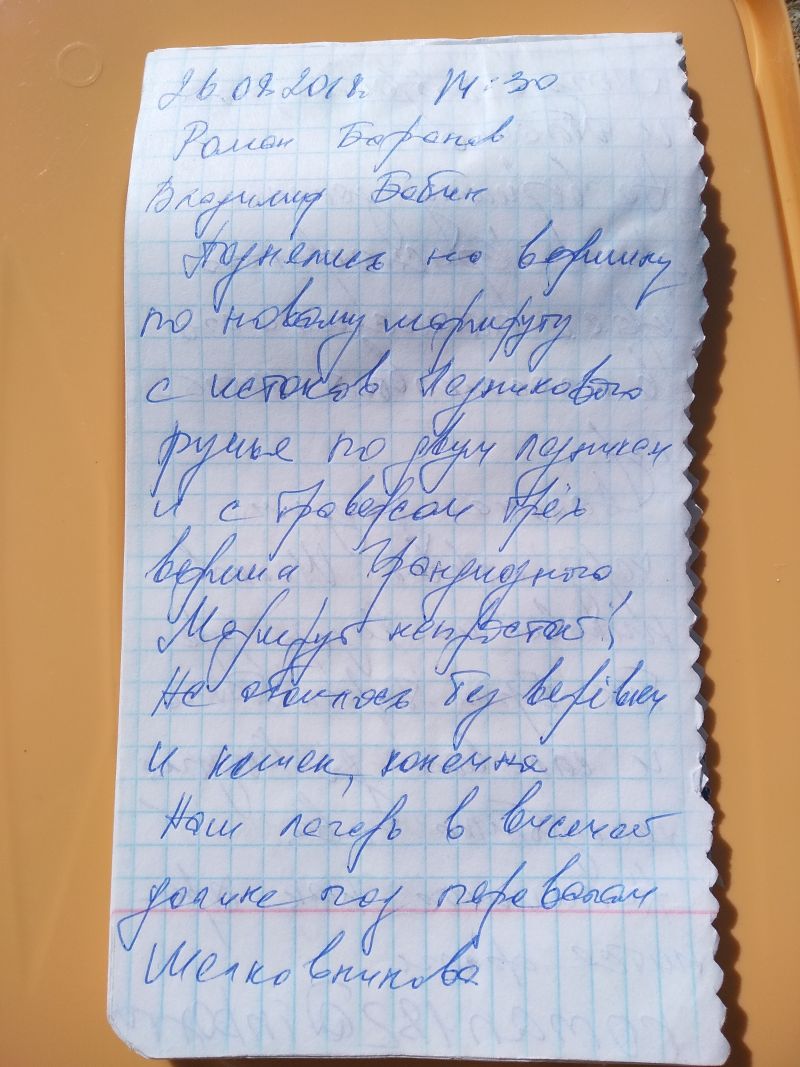 26.08.2018г. 14:30
Роман Баранов
Владимир Бабин
Поднялись на вершину
по новому маршруту
с истоков Ледникового
ручья по двум ледникам
и с траверсом трёх
вершин Грандиозного
Маршрут непростой!
Не обошлось без верёвки
и кошек, конечно
Наш лагерь в висячей
долине под перевалом
Шелковникова